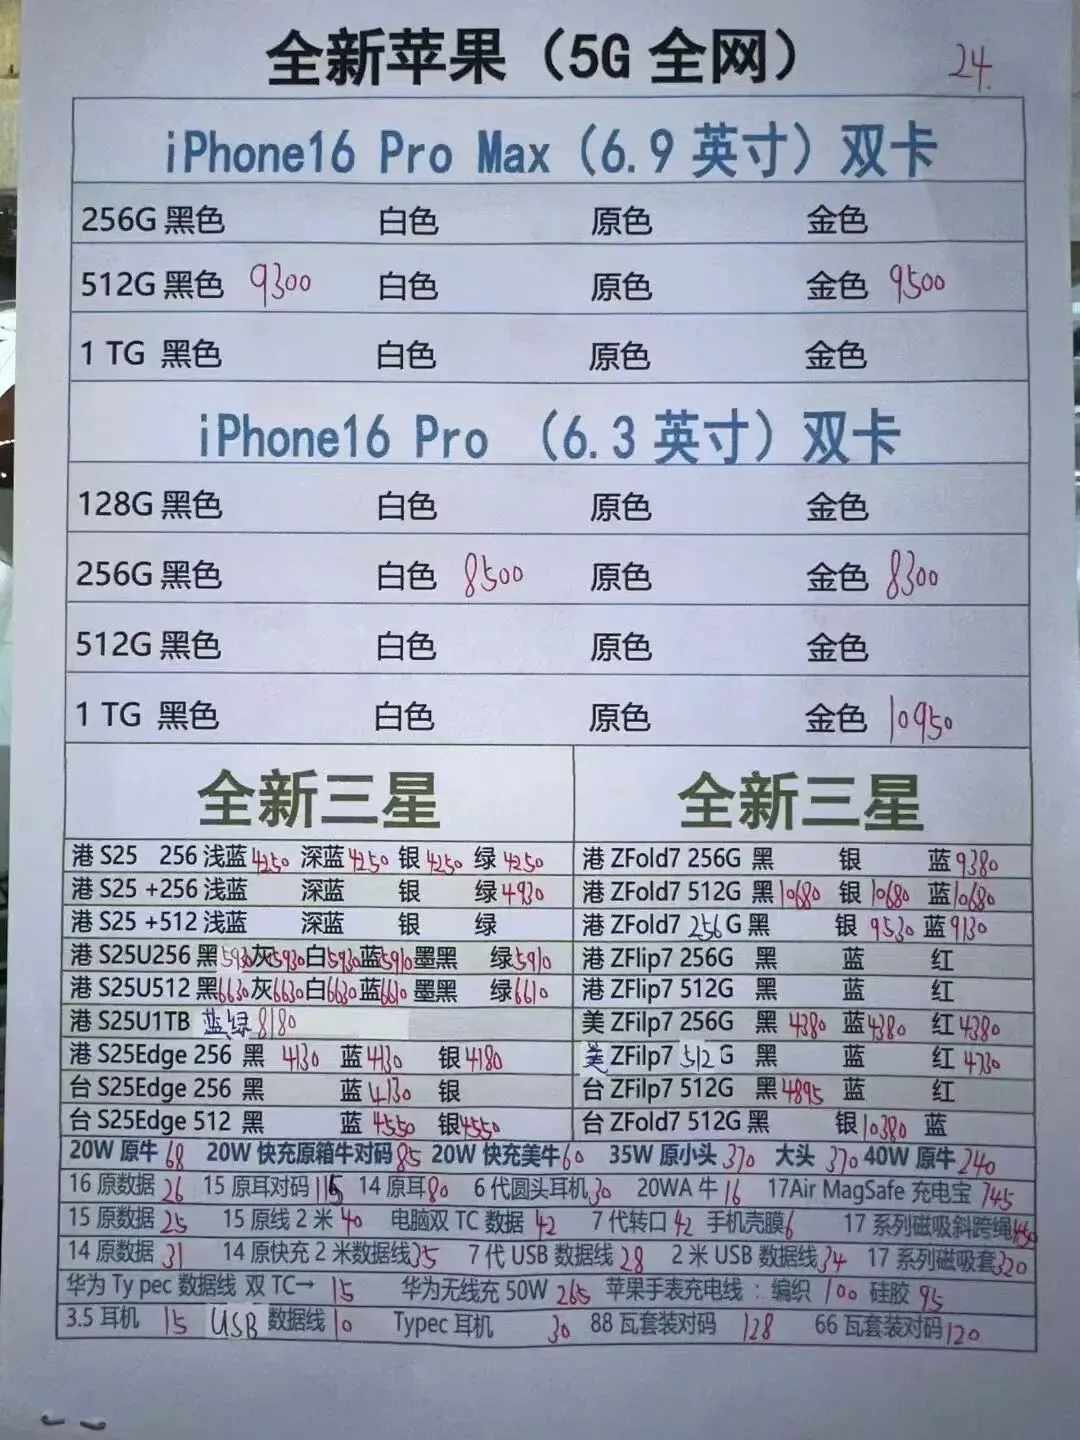 全新苹果（5G 全网） 24.
iPhone16 Pro Max（6.9 英寸）双卡
256G 黑色 白色 原色 金色
512G 黑色 9300 白色 原色 金色 9500
1 TG 黑色 白色 原色 金色
iPhone16 Pro （6.3 英寸）双卡
128G 黑色 白色 原色 金色
256G 黑色 白色 8500 原色 金色 8300
512G 黑色 白色 原色 金色
1 TG 黑色 白色 原色 金色 10950
全新三星 全新三星
港 S25 256 浅蓝 4250 深蓝 4250 银 4250 绿 4250 港 ZFold7 256G 黑 银 蓝 9380
港 S25 +256 浅蓝 深蓝 银 绿 4930 港 ZFold7 512G 黑 10680 银 10680 蓝 10680
港 S25 +512 浅蓝 深蓝 银 绿 港 ZFold7 256 G 黑 银 9530 蓝 9130
港 S25U256 黑 5930 灰 5930 白 5930 蓝 5910 墨黑 绿 5910 港 ZFlip7 256G 黑 蓝 红
港 S25U512 黑 6630 灰 6630 白 6630 蓝 6610 墨黑 绿 6610 港 ZFlip7 512G 黑 蓝 红
港 S25U1TB 蓝绿 8180 美 ZFilp7 256G 黑 4380 蓝 4380 红 4380
港 S25Edge 256 黑 4130 蓝 4130 银 4180 美 ZFilp7 512 G 黑 蓝 红 4730
台 S25Edge 256 黑 蓝 4130 银 台 ZFilp7 512G 黑 4895 蓝 红
台 S25Edge 512 黑 蓝 4550 银 4550 台 ZFold7 512G 黑 银 10380 蓝
20W 原牛 68 20W 快充原箱牛对码 85 20W 快充美牛 60 35W 原小头 370 大头 370 40W 原牛 240
16 原数据 26 15 原耳对码 115 14 原耳 80 6 代圆头耳机 30 20WA 牛 16 17Air MagSafe 充电宝 745
15 原数据 25 15 原线 2 米 40 电脑双 TC 数据 42 7 代转口 42 手机壳膜 6 17 系列磁吸斜跨绳
14 原数据 31 14 原快充 2 米数据线 35 7 代 USB 数据线 28 2 米 USB 数据线 34 17 系列磁吸套 320
华为 Ty pec 数据线 双 TC→ 15 华为无线充 50W 265 苹果手表充电线 ：编织 100 硅胶 95
3.5 耳机 15 USB 数据线 10 Typec 耳机 30 88 瓦套装对码 128 66 瓦套装对码 120